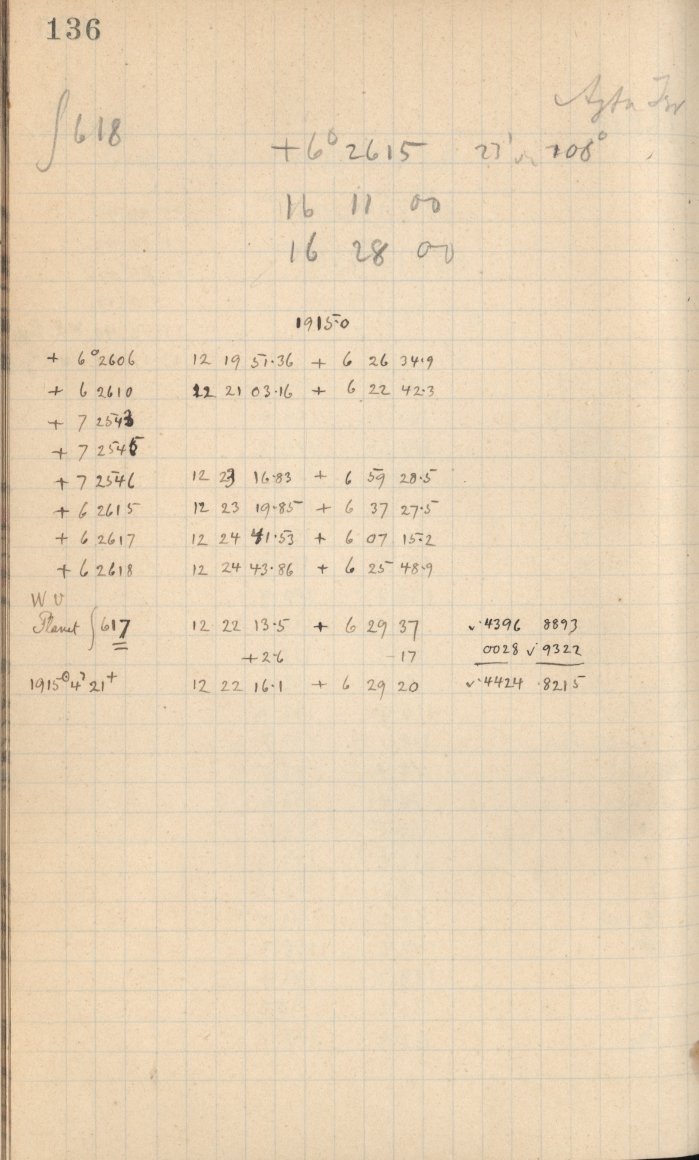 136
∫618
+6° 2615 23' 108°
16 11 00
16 28 00
1915·0
+ 6° 2606 12 19 51·36 + 6 26 34·9
+ 6 2610 12 21 03·16 + 6 22 42·3
+ 7 2543
+ 7 2545
+ 7 2546 12 23 16·83 + 6 59 28·5
+ 6 2615 12 23 19·85 + 6 37 27·5
+ 6 2617 12 24 41·53 + 6 07 15·2
+ 6 2618 12 24 43·86 + 6 25 48·9
W U
Planet ∫617 12 22 13·5 + 6 29 37 √·4396 8893
+2·6 -17 0028 √9322
1915 4 21+ 12 22 16·1 + 6 29 20 √·4424 ·8215